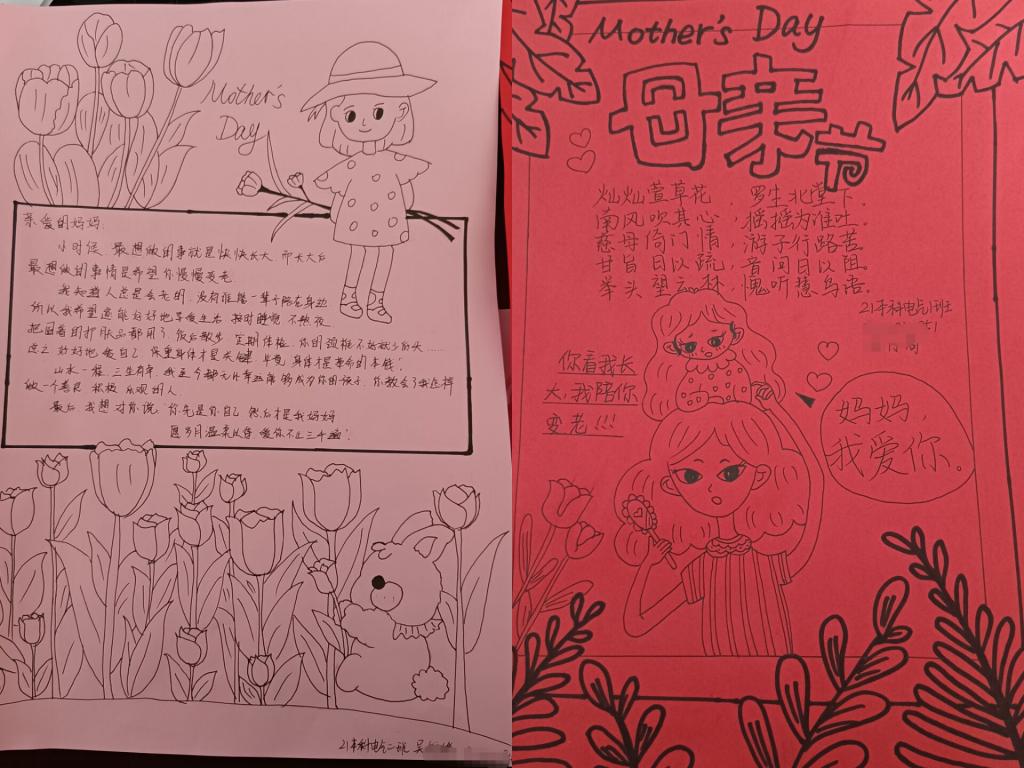 Mother's
Day
亲爱的妈妈:
小时候,最想做的事就是快快长大,而长大后
最想做的事情是希望你慢慢变老
我知道人总是会老的,没有谁能一辈子陪在身边
所以我希望您能好好地享受生活 按时睡觉 不熬夜
把囤着的护肤品都用了 饭后散步 定期体检
总之 好好地 爱自己 保重身体才是关键 毕竟 身体才是革命的本钱!
山水一程,三生有幸,我至今都无比幸运能够成为你的孩子,你教会了我怎样
做一个善良 积极 乐观的人
最后,我想对你说:你先是你自己 然后才是我妈妈
愿岁月温柔以待 爱你不止三千遍!
21本科电气二班 吴
Mother's Day
母亲节
灿灿萱草花,罗生北堂下。
南风吹其心,摇摇为谁吐。
慈母倚门情,游子行路苦。
甘旨日以疏,音问日以阻。
举头望云林,愧听慧鸟语。
21本科电气1班
你看我长
大,我陪你
变老!!!
妈妈,
我爱你。